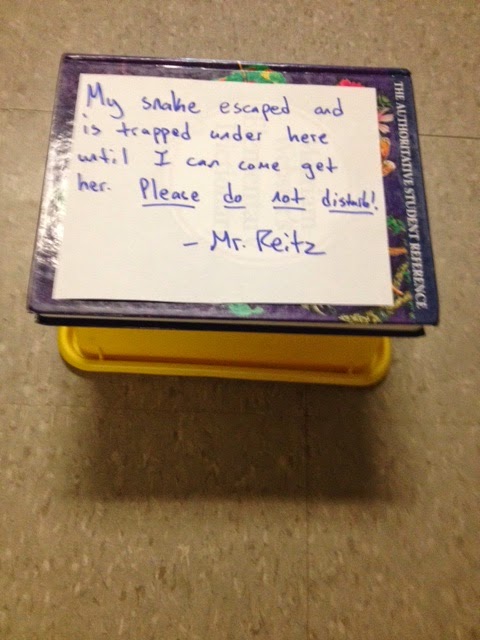 My snake escaped and
is trapped under here
until I can come get
her. Please do not disturb!
- Mr. Reitz
THE AUTHORITATIVE STUDENT REFERENCE